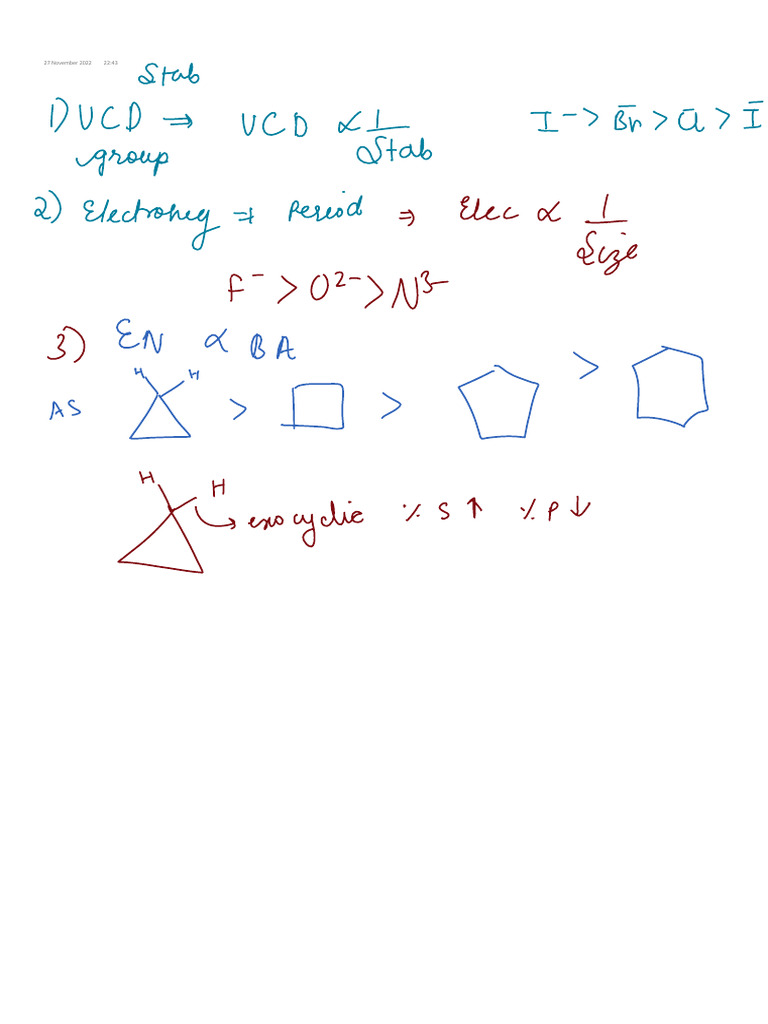 27 November 2022 22:43
Stab
1) VCD ⇒ VCD ∝ 1/Stab I⁻ > B̅r > C̅l > I̅
group
2) Electroneg ⇒ Period ⇒ Elec ∝ 1/Size
F⁻ > O²⁻ > N³⁻
3) EN ∝ BA
H H
AS > > >
H H
exocyclic % S ↑ % P ↓